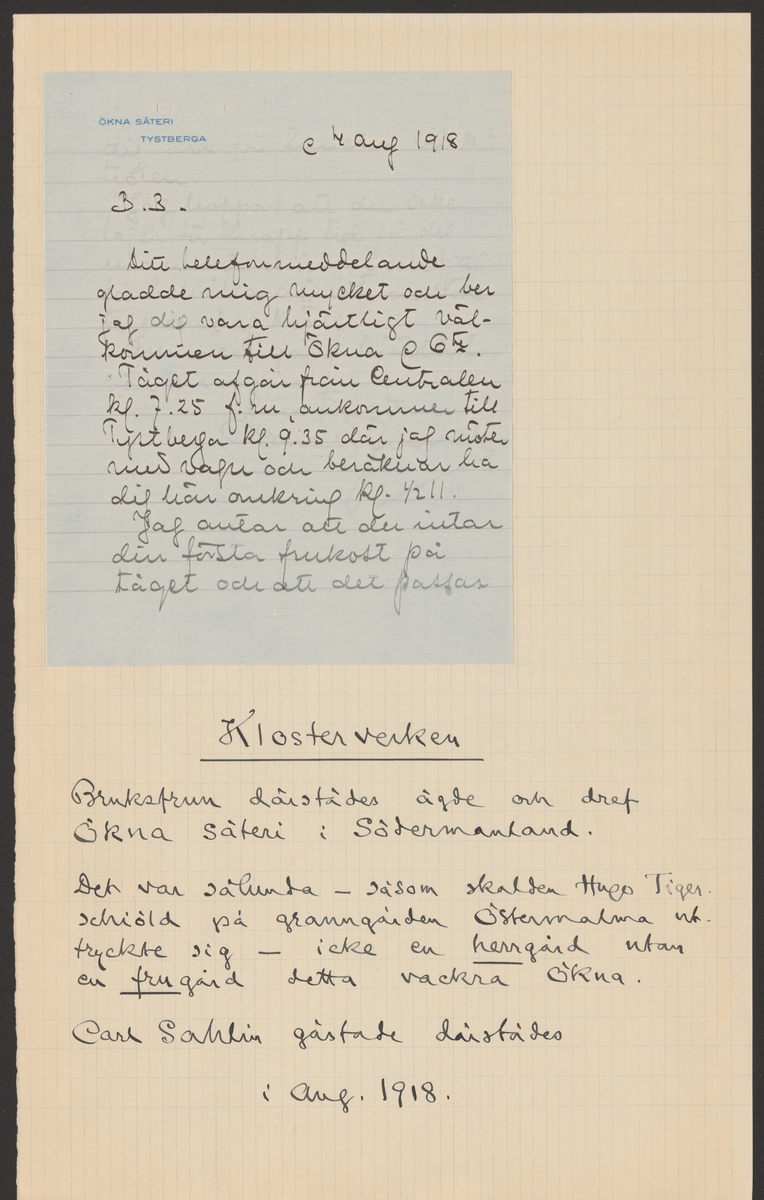 ÖKNA SÄTERI
TYSTBERGA
4 aug 1918
B.B.
Ditt telefonmeddelande
gladde mig mycket och ber
jag dig vara hjärtligt väl-
kommen till Ökna 6te.
Tåget afgår från Centralen
kl. 7.25 f.m, ankommer till
Tystberga kl. 9.35 där jag möter
med vagn och beräknar ha
dig här omkring kl. 1/2 11.
Jag antar att du intar
din första frukost på
tåget och att det passar
Klosterverken
Bruksfrun därstädes ägde och dref
Ökna säteri i Södermanland.
Det var sålunda – såsom skalden Hugo Tiger-
schiöld på granngården Östermalma ut-
tryckte sig – icke en herrgård utan
en frugård detta vackra Ökna.
Carl Sahlin gästade därstädes
i Aug. 1918.